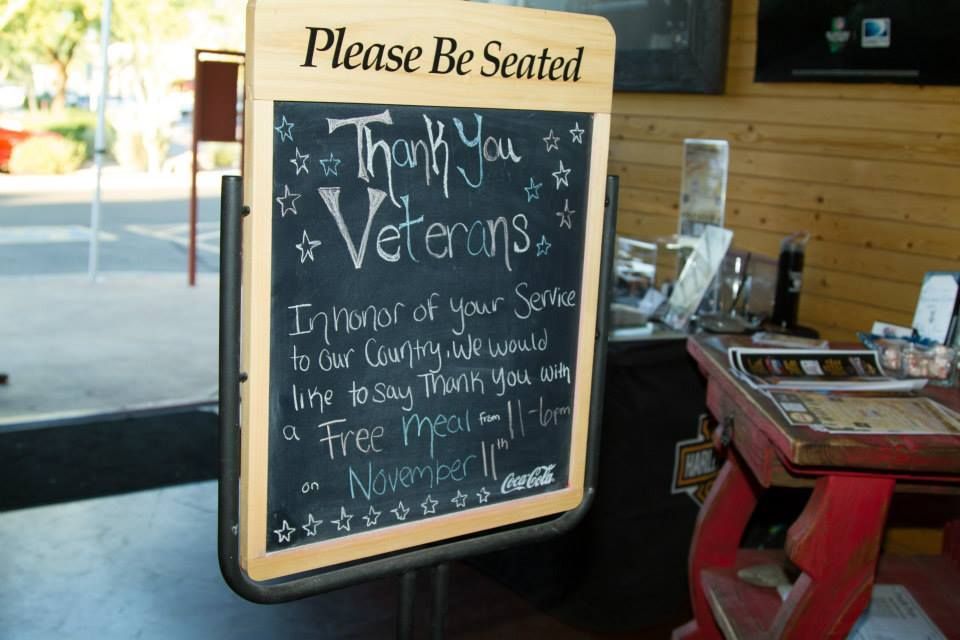 Please Be Seated
Thank You
Veterans
In honor of your Service
to our Country, we would
like to say Thank you with
a Free meal from 11-6pm
on November 11th
Coca-Cola
HARL